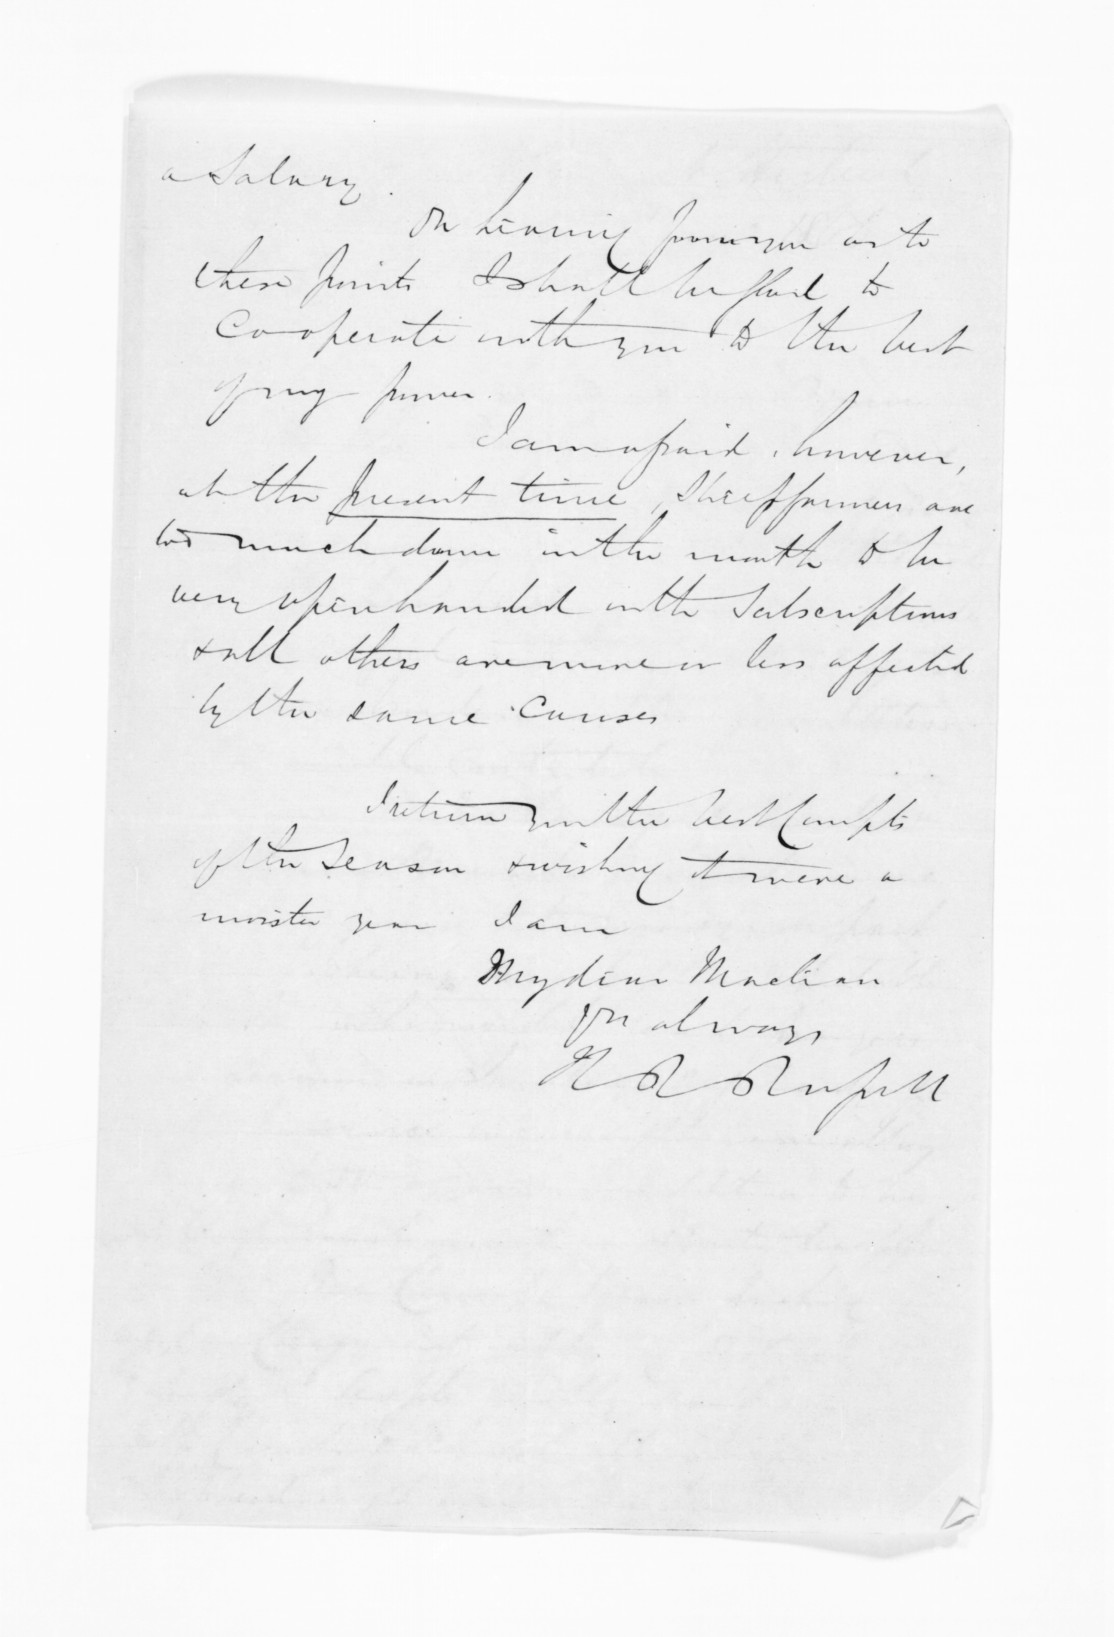 a Salary.
On hearing from you as to
these points I shall be glad to
Cooperate with you to the best
of my power.
I am afraid, however,
at the present time, Sheepfarmers are
too much down in the mouth to be
very openhanded with Subscriptions
& all others are more or less affected
by the same Causes
I return you the best Compts
of the Season & wishing it were a
moister year I am
My dear Maclean
Yrs always
H R Russell